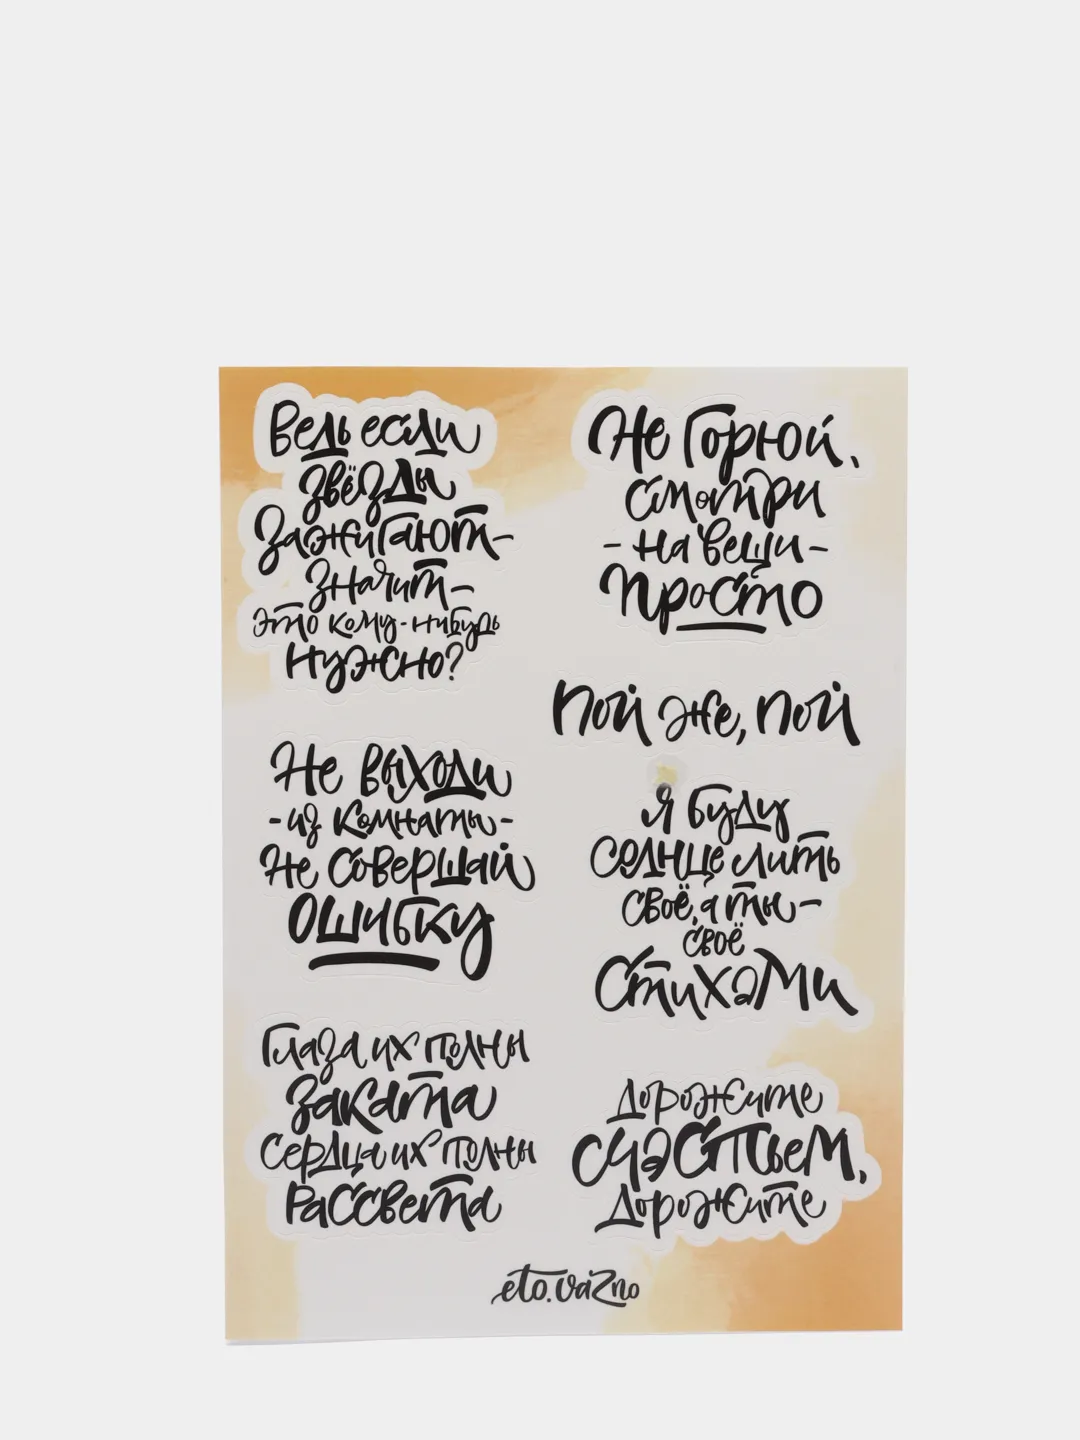 Ведь если
звёзды
зажигают-
значит-
это кому-нибудь
нужно?
Не выходи
-из комнаты-
Не совершай
ошибку
Глаза их полны
заката
Сердца их полны
рассвета
Не горюй,
смотри
-на вещи-
просто
Пой же, пой
Я буду
солнце лить
своё, а ты-
своё
стихами
Дорожите
счастьем,
дорожите
eto.vazno